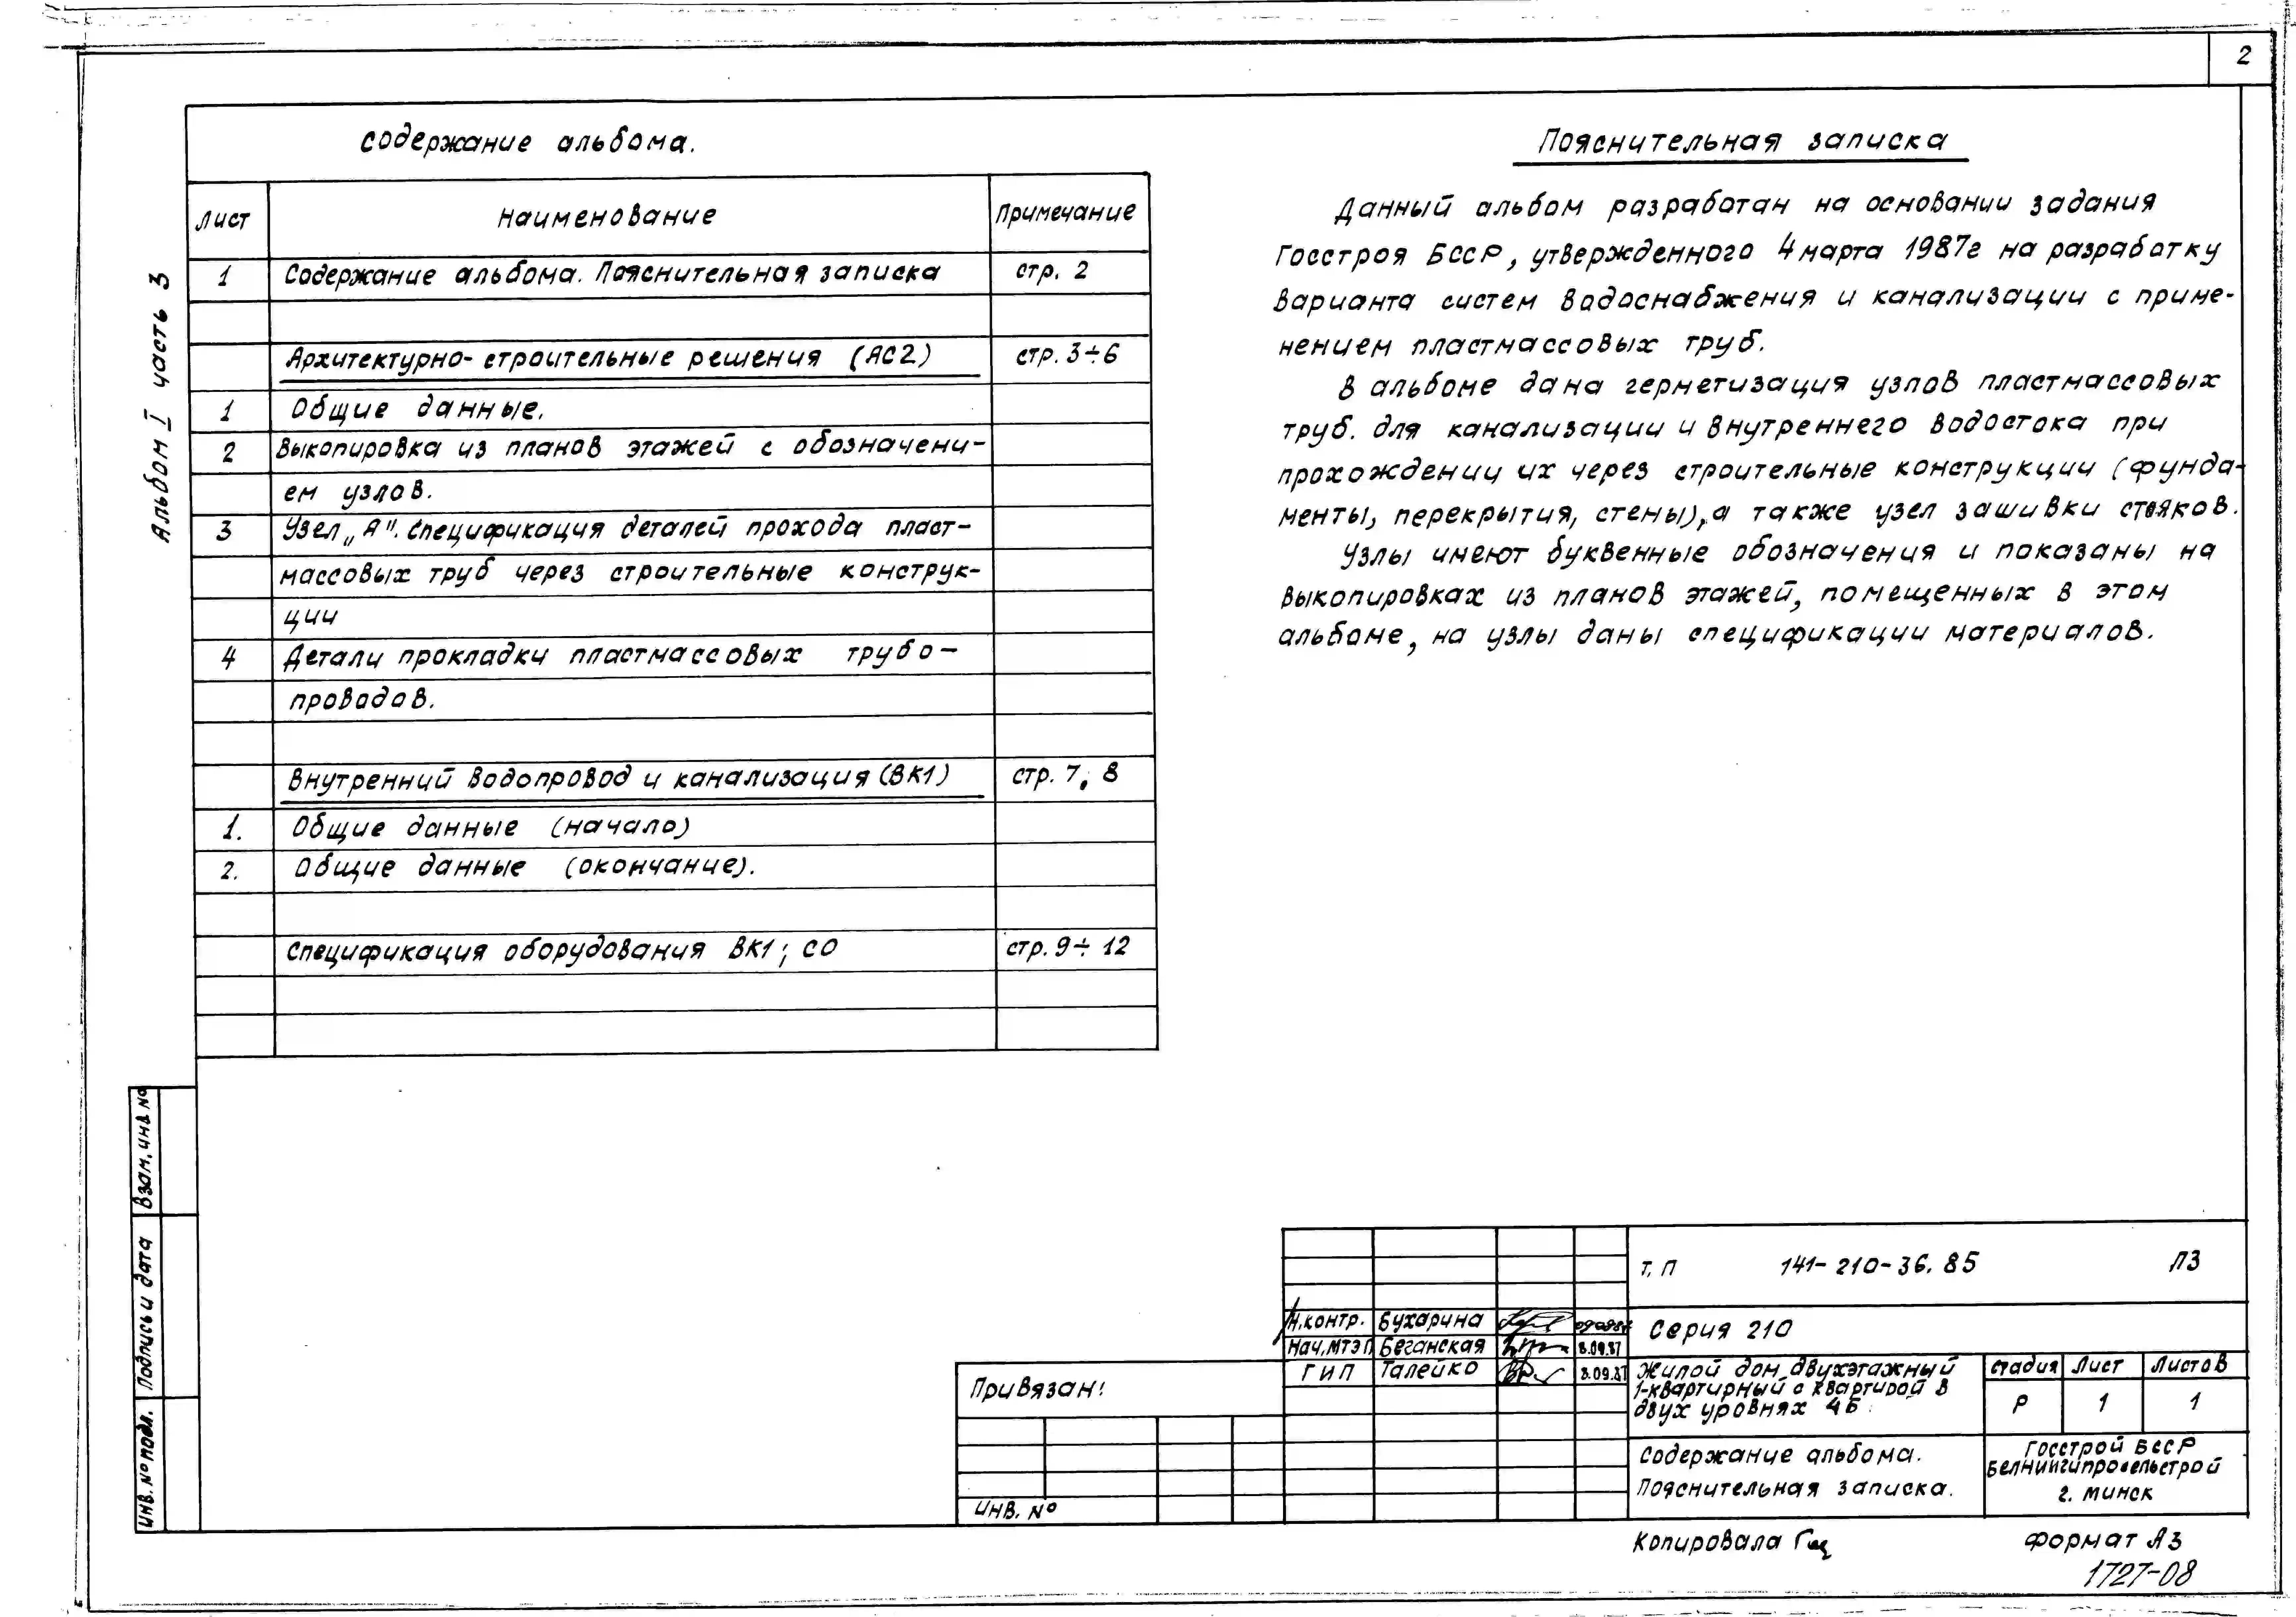 2
Содержание альбома.
Лист Наименование Примечание
1 Содержание альбома. Пояснительная записка стр. 2
Архитектурно-строительные решения (АС2) стр. 3÷6
1 Общие данные.
2 Выкопировка из планов этажей с обозначени-
ем узлов.
3 Узел „А". Спецификация деталей прохода пласт-
массовых труб через строительные конструк-
ции
4 Детали прокладки пластмассовых трубо-
проводов.
Внутренний водопровод и канализация (ВК1) стр. 7, 8
1. Общие данные (начало)
2. Общие данные (окончание).
Спецификация оборудования ВК1; СО стр. 9÷12
Альбом I часть 3
Пояснительная записка
Данный альбом разработан на основании задания
Госстроя БССР, утвержденного 4 марта 1987г на разработку
варианта систем водоснабжения и канализации с приме-
нением пластмассовых труб.
В альбоме дана герметизация узлов пластмассовых
труб. для канализации и внутреннего водостока при
прохождении их через строительные конструкции (фунда-
менты, перекрытия, стены), а также узел зашивки стояков.
Узлы имеют буквенные обозначения и показаны на
выкопировках из планов этажей, помещенных в этом
альбоме, на узлы даны спецификации материалов.
Взам. инв. №
Подпись и дата
Инв. № подл.
Привязан:
Инв. №
Н.контр. Бухарина
Нач.МТЭП Беганская 8.09.87
ГИП Талейко 8.09.87
Т.П 141-210-36.85 ПЗ
Серия 210
Жилой дом двухэтажный
1-квартирный с квартирой в
двух уровнях 4Б
Стадия Лист Листов
Р 1 1
Содержание альбома.
Пояснительная записка.
Госстрой БССР
БелНИИгипросельстрой
г. Минск
Копировала
Формат А3
1727-08